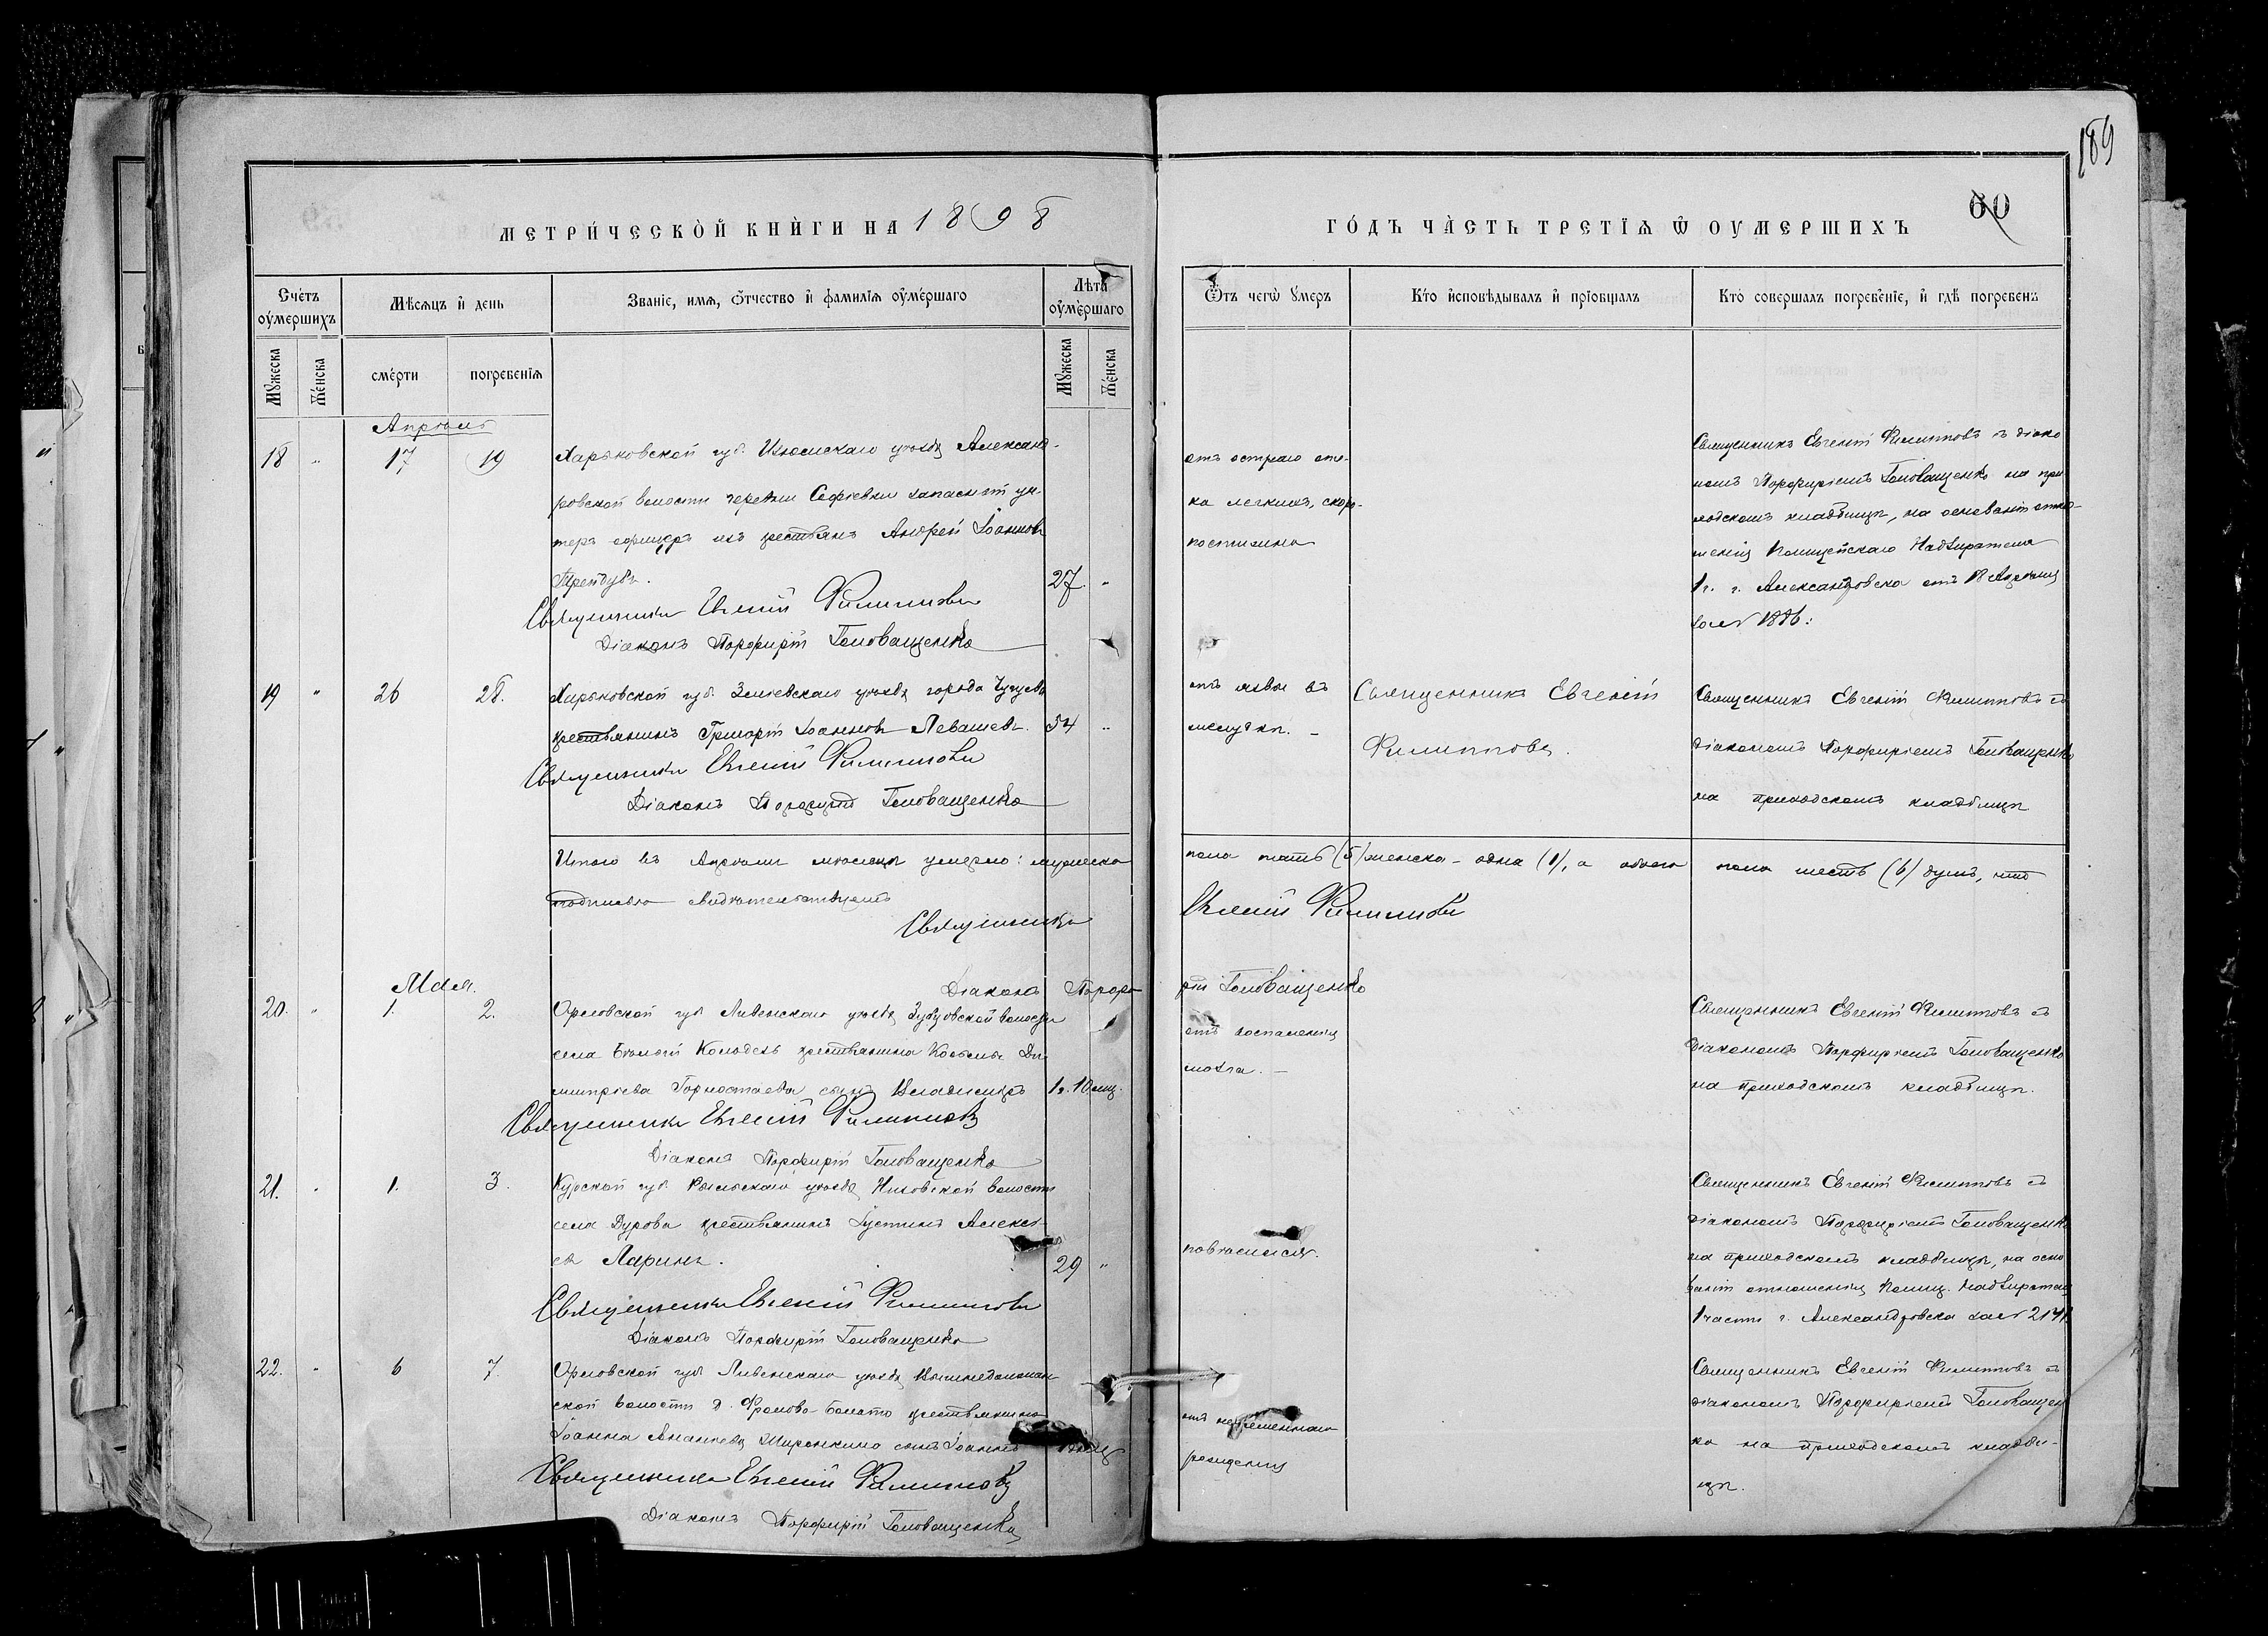 189
60
МЕТРИ́ЧЕСКОЙ КНИ́ГИ НА 1898
ГО́ДЪ ЧА́СТЬ ТРЕТІѦ Ѿ ОУМЕРШИХЪ
Сче́тъ оу҆ме́ршихъ
Мѣ́сяцъ и҆ день
Званіе, имѧ, ѻ҆тчество и҆ фамилїѧ оу҆ме́ршаго
Лѣта оу҆ме́ршаго
Ѿтъ чегѡ̀ ᲂумеръ
Кто̀ и҆сповѣ́дывалъ и҆ прїобща́лъ
Кто̀ совершалъ погребе́нїе, и҆ гдѣ̀ погребенъ
Мꙋжеска
Же́нска
сме́рти
погребенїѧ
Мꙋжеска
Же́нска
Апрѣль
18 " 17 19
Харьковской губ. Изюмскаго уѣзда Александ-
ровской волости деревни Софіевки запасный ун-
теръ офицеръ изъ крестьянъ Андрей Іоанновъ
27 "
Священникъ Евгеній Филипповъ
Діаконъ Порфирій Головащенко
отъ остраго оте-
ка легкихъ, скоро-
постижно
Священникъ Евгеній Филипповъ съ діако
номъ Порфиріемъ Головащенко на при
ходскомъ кладбищѣ, на основаніи отно-
шенія Полицейскаго Надзирателя
1 ч. г. Александровска отъ 18 Апрѣля
за №
19 " 26 28.
Харьковской губ. Зміевскаго уѣзда города Чугуева
крестьянинъ Григорій Іоанновъ Левашевъ. 54 "
Священникъ Евгеній Филипповъ
Діаконъ Порфирій Головащенко
отъ язвы въ
желудкѣ. –
Священникъ Евгеній
Филипповъ.
Священникъ Евгеній Филипповъ съ
діакономъ Порфиріемъ Головащенко
на приходскомъ кладбищѣ
Итого въ Апрѣлѣ мѣсяцѣ умерло: мужеска
пола пять (5) женска – одна (1), а обоего пола шесть (6) душъ, что
подписью свидѣтельствуетъ
Священникъ Евгеній Филипповъ
Діаконъ Порфи рій Головащенко
Мая.
20. " 1. 2.
Орловской губ. Ливенскаго уѣзда волости
села Бѣлый Колодезь крестьянина Космы Ди
митріева Горностаева сынъ Владиміръ 1 г. 10 мц.
Священникъ Евгеній Филипповъ
Діаконъ Порфирій Головащенко
отъ воспаленія
мозга. –
Священникъ Евгеній Филипповъ съ
діакономъ Порфиріемъ Головащенко
на приходскомъ кладбищѣ.
21. " 1. 3.
Курской губ. Рыльскаго уѣзда волости
села Дурова крестьянинъ Іустинъ Алексі-
евъ Ларинъ. 29 "
Священникъ Евгеній Филипповъ
Діаконъ Порфирій Головащенко
повѣсился.
Священникъ Евгеній Филипповъ съ
діакономъ Порфиріемъ Головащенко
на приходскомъ кладбищѣ, на осно
ваніи отношенія Полиц. Надзирателя
1 части г. Александровска за №
22. " 6 7.
Орловской губ. Ливенскаго уѣзда
ской волости д. Болото крестьянина
Іоанна Ананіева сынъ Іоаннъ
Священникъ Евгеній Филипповъ
Діаконъ Порфирій Головащенко
отъ
рожденія
Священникъ Евгеній Филипповъ съ
діакономъ Порфиріемъ Головащен
ко на приходскомъ кладби-
щѣ.